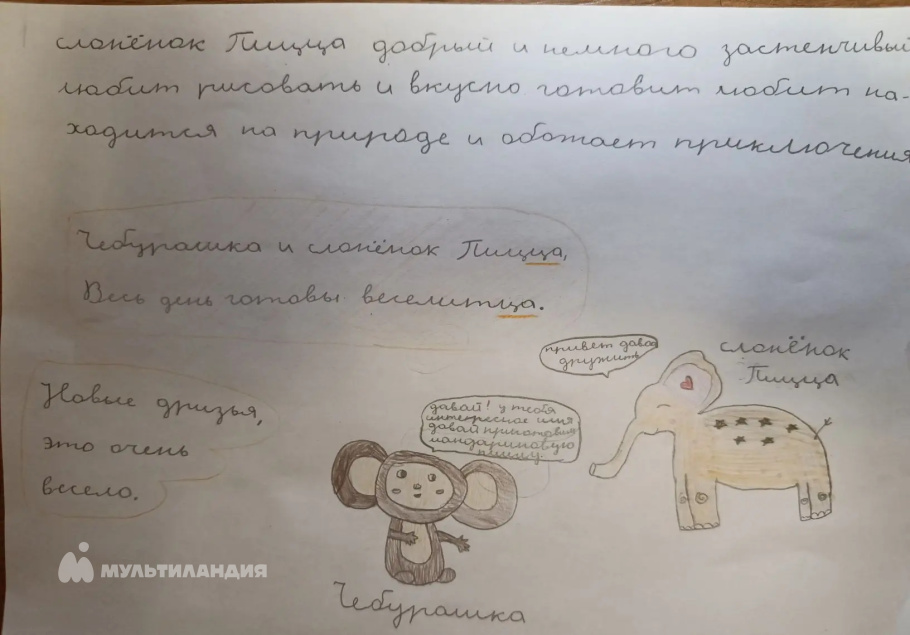 слонёнок Пицца добрый и немного застенчивый
любит рисовать и вкусно готовит любит на-
ходится на природе и обожает приключения
Чебурашка и слонёнок Пицца,
Весь день готовы веселитца.
привет давай
дружить
слонёнок
Пицца
Новые друзья,
это очень
весело.
давай! у тебя
интересное имя
давай приготовим
мандариновую
пиццу.
Чебурашка
МУЛЬТИЛАНДИЯ